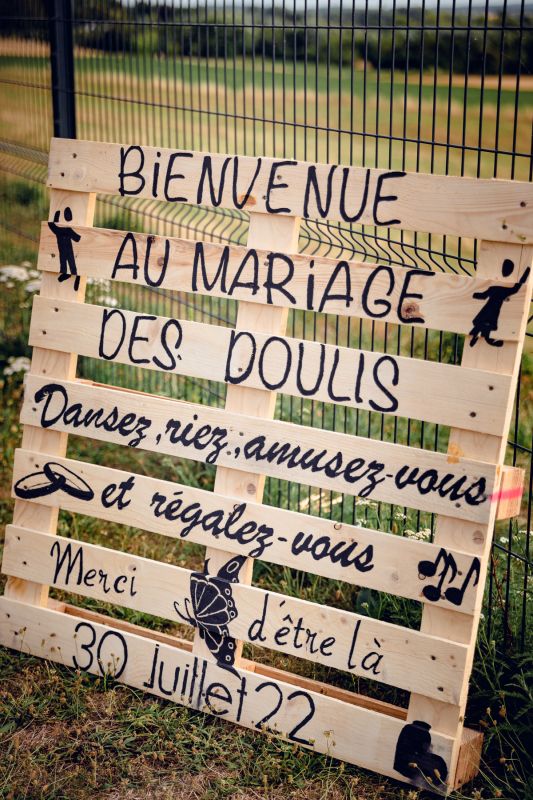 BiENVENUE
AU MARiAGE
DES DOULIS
Dansez, riez, amusez-vous
et régalez-vous
Merci d'être là
30 juillet 22